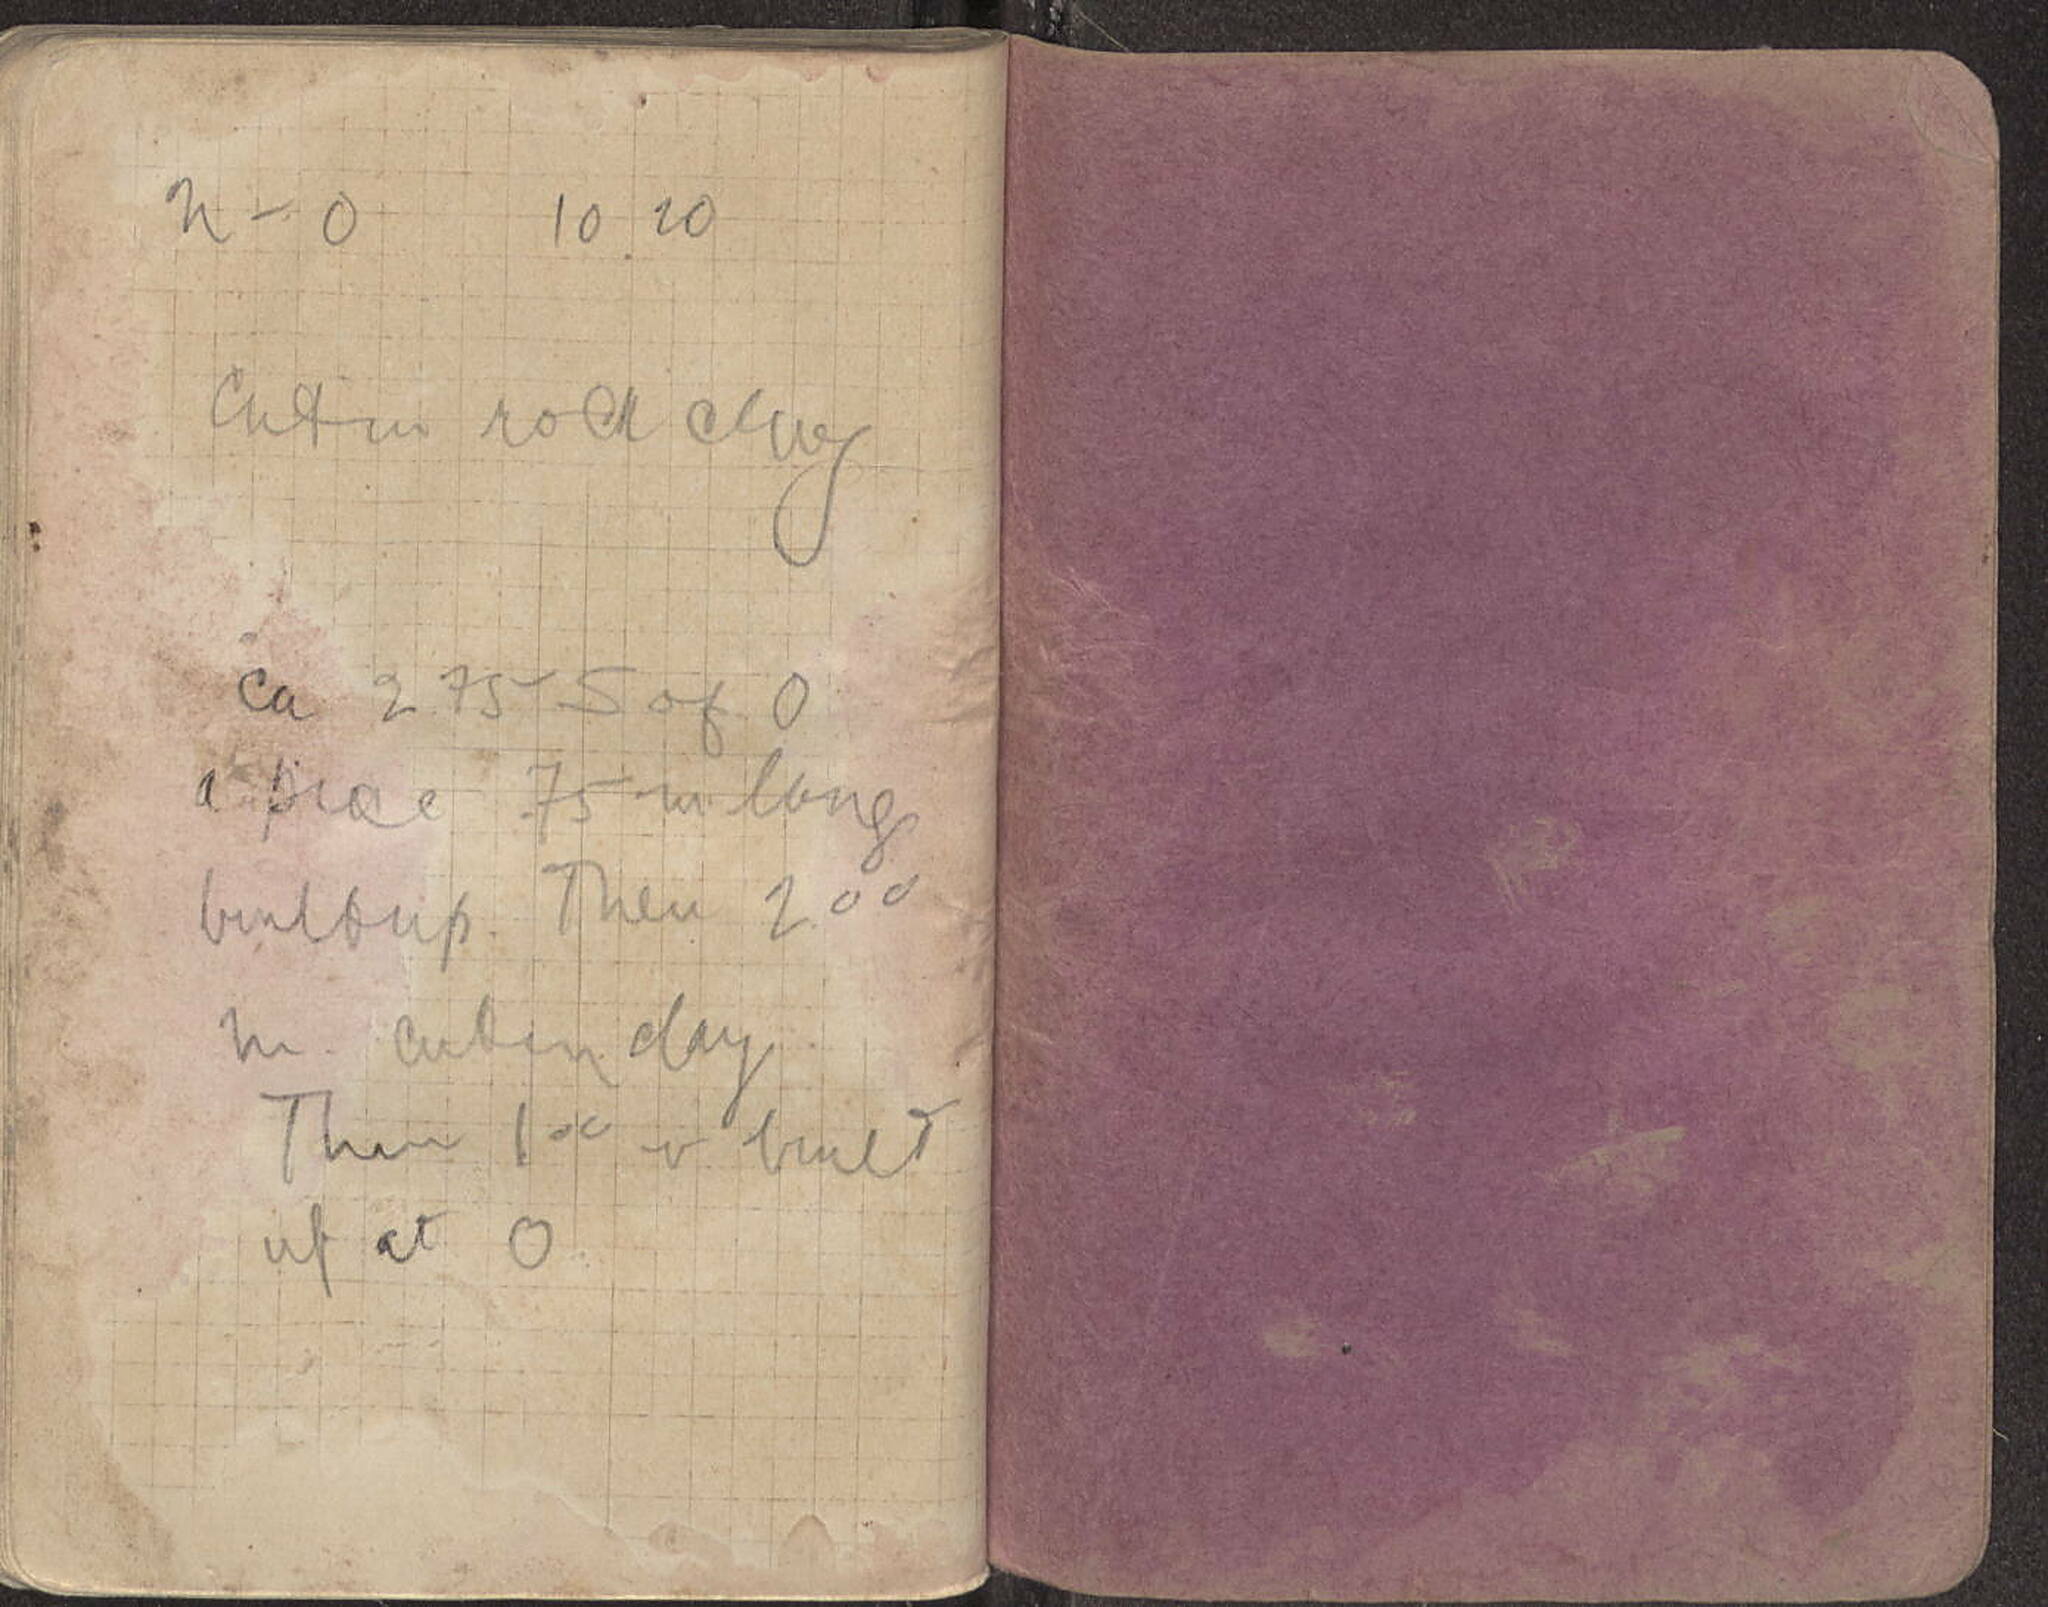 N - O 10 20
Cut in rock clay
ca 275 S of O
a piece 75 m long
built up. Then 200
m. cut in clay
Then 100 built
up at O